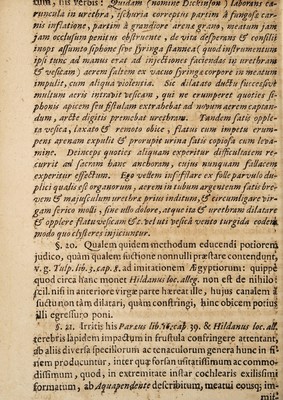 rum, his verbis: Quidam (nomine Dickinson) laborans ca-
runcula in urethra, ischuria correptus partim à fungosa car-
nis inflatione, partim à grandiore arena grano, meatum jam
jam occlusum penitus obstruente, de vita desperans & consilii
inops assumto siphone sive syringa stannea (quod instrumentum
ipsi tunc ad manus erat ad injectiones faciendas in urethram
& vesicam) aerem saltem ex vacuo syringæ corpore in meatum
impulit, cum aliqua violentia. Sic dilatato ductu successivè
multum aeris intravit vesicam, qui ne erumperet quoties si-
phonis apicem seu fistulam extrahebat ad novum aerem captan-
dum, arctè digitis premebat urethram. Tandem satis opple-
ta vesica, laxato & remoto obice, flatus cum impetu erum-
pens arenam expulit & prorupit urina satis copiosa cum leva-
mine. Deinceps quoties aliquam experitur difficultatem re-
currit ad sacram hanc anchoram, cujus nunquam fallacem
experitur effectum. Ego vellem insistere ex folle parvulo du-
plici qualis est organorum, aerem in tubum argenteum satis bre-
vem & majusculum urethræ prius inditum, & circumligare vir-
gam serico molli, sine ullo dolore, atque ita & urethram dilatare
& opplere flatu vesicam &c. & veluti vesica vento turgida eodem
modo quo clysteres injiciuntur.
§. 20. Qualem quidem methodum educendi potiorem
judico, quàm qualem suctione nonnulli præstare contendunt,
v. g. Tulp. lib. 3. cap. 8. ad imitationem Ægyptiorum: quippè
quod circa hanc monet Hildanus loc. alleg. non est de nihilo:
scil. nisi in anteriore virgæ parte hæreat ille, hujus canalem à
suctu non tàm dilatari, quàm constringi, hinc obicem potius
illi egressuro poni.
§. 21. Irritis his Paræus lib. 16. cap 39. & Hildanus loc. all.
terebris lapidem impactum in frustula confringere attentant,
ab aliis diversa specillorum ac tenaculorum genera hunc in fi-
nem producuntur, inter quæ forsan usitatissimum ac commo-
dissimum, quod, in extremitate instar cochlearis exilissimi
formatum, ab Aquapendente describitum, meatui eousq; im-
mit-